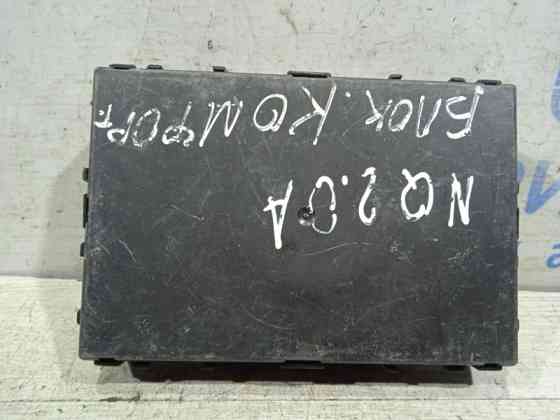 БЛОК. КОМФОРТ
NQ 2.0 A